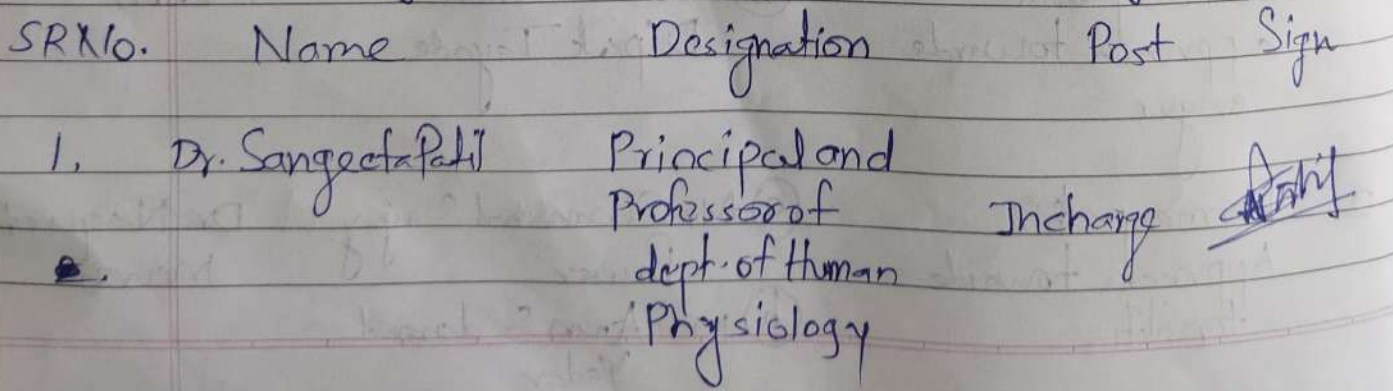 SR No. Name Designation Post Sign
1. Dr. Sangeeta Patil Principal and
Professor of Incharge
dept. of Human
Physiology